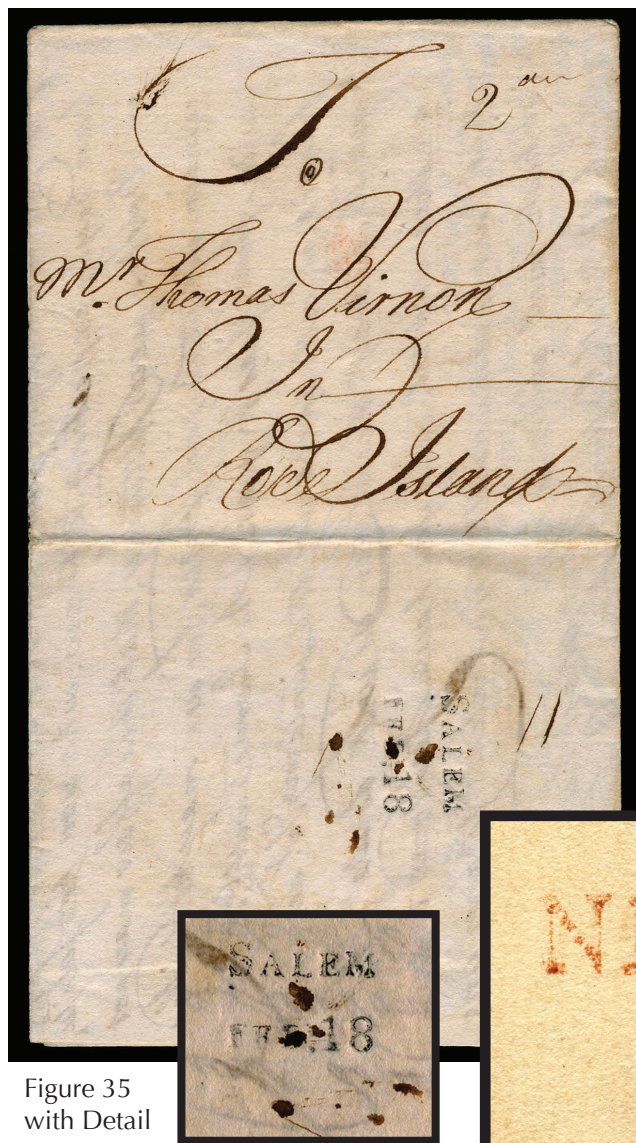 To
2 dw
Mr. Thomas Virnon
In
Rode Island
11
SALEM
FEB.18
SALEM
FEB.18
N
Figure 35
with Detail